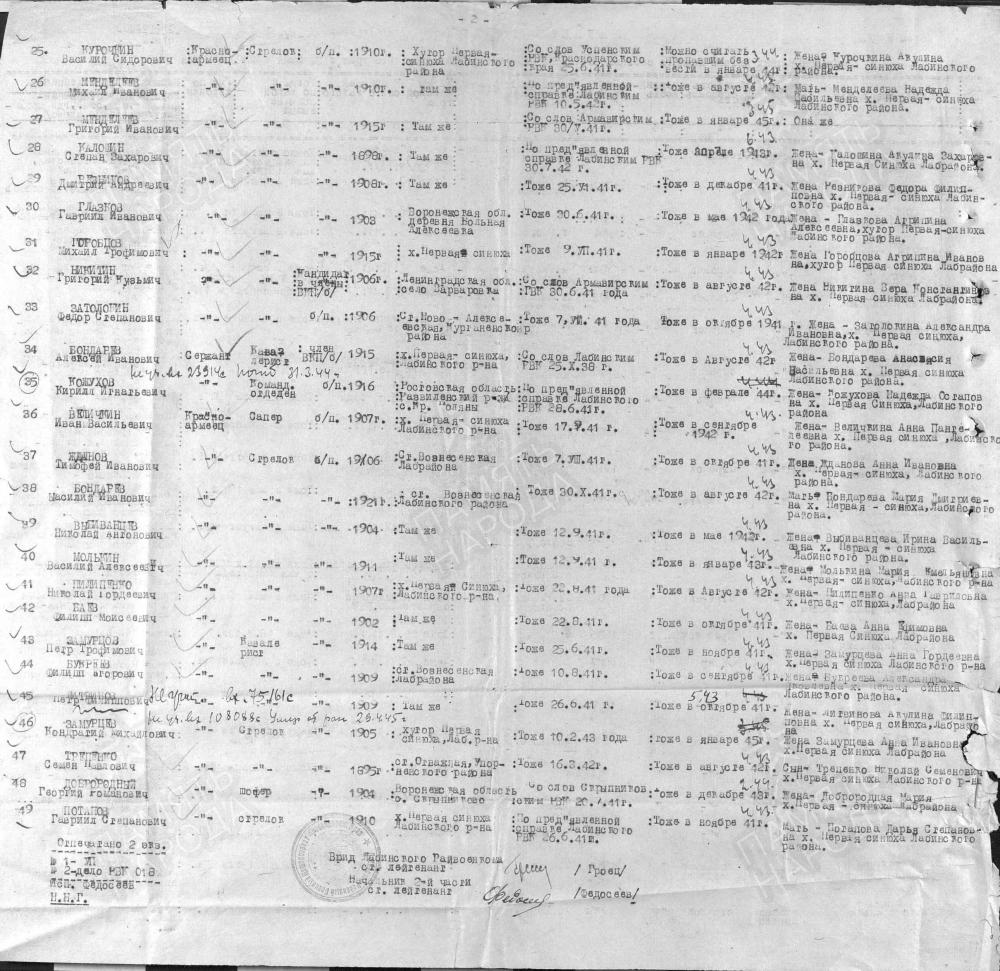 - 2 -
25. КУРОЧКИН Василий Сидорович :Красно-армеец :Стрелок: б/п. :1910г. : Хутор Первая-синюха Лабинского района :Со слов Успенским РВК,Краснодарского края 25.6.41г. :Можно считать пропавшим без вести в январе 44г Жена- Курочкина Акулина х. Первая- синюха Лабинского района.
26 МЕНДЕЛЕЕВ Михаил Иванович -"- -"- -"- :1910г. : там же :По пред"явленной справке Лабинским РВК 10.5.42г. :Тоже в августе 42г: Мать- Менделеева Надежда Васильевна х. Первая- синюха Лабинского района.
27 МЕНДЕЛЕЕВ Григорий Иванович -"- -"- -"- :1915г : Там же :Со слов Армавирским РВК 30/V.41г. :Тоже в январе 45г: Она же
28 КАЛОШИН Степан Захарович -"- -"- -"- 1898г. : Там же :По пред"явленной справке Лабинским РВК 30.7.42 г. :Тоже 1943г. Жена- Галошина Акулина Захаровна х. Первая Синюха Лабрайона.
29 Дмитрий Андреевич -"- -"- -"- 1908г. : Там же :Тоже 25.VI.41г. :Тоже в декабре 41г. Жена Резникова Федора Филипповна х. Первая- синюха Лабинского района.
30 ГЛАЗКОВ Гавриил Иванович -"- -"- -"- 1903 : Воронежская обл. деревня Вольная Алексеевка :Тоже 30.6.41г. :Тоже в мае 1942 года Жена - Глазкова Агрипина Алексеевна,хутор Первая-синюха Лабинского района.
31 ГОРОБЦОВ Михаил Трофимович -"- -"- -"- 1915г : х.Первая синюха :Тоже 9.VII.41г. :Тоже в январе 1942г Жена Горобцова Агрипина Ивановна,хутор Первая синюха Лабрайона
32 НИКИТИН Григорий Кузьмич -"- -"- :Кандидат в члены ВКП/б/ :1906г. :Ленинградская обл. село Варваровка :Со слов Армавирским РВК 30.6.41 года :Тоже в августе 42г. Жена Никитина Вера Константиновна х. Первая синюха Лабрайона.
33 ЗАТОЛОКИН Федор Степанович -"- -"- б/п. :1906 :Ст.Ново - Алексеевская,Курганенского района :Тоже 7,VIII. 41 года Тоже в октябре 1941 г. Жена - Затолокина Александра Ивановна,х. Первая синюха, Лабинского района.
34 БОНДАРЕВ Алексей Иванович Сержант :Кавалерист : член ВКП/б/ 1915 :х.Первая-синюха, Лабинского р-на :Со слов Лабинским РВК 25.X.38 г. :Тоже в Августе 42г Жена- Бондарева Анастасия Васильевна х. Первая синюха Лабинского района.
31.3.44г
35 КОЖУХОВ Кирилл Игнатьевич -"- Команд. отделен б/п.1916 :Ростовская область: с.Кр. Поляны :По пред"явленной справке Лабинского РВК 28.6.41г. :Тоже в феврале 44г. Жена- Кожухова Надежда Остаповна х. Первая Синюха,Лабинского района
36 ВЕЛИЧКИН Иван Васильевич Красно-армеец Сапер б/п. 1907г. :х. Первая -синюха Лабинского р-на :Тоже 17.9.41 г. :Тоже в сентябре 1942 г. Жена- Величкина Анна х. Первая синюха ,Лабинского района.
37 ЖДАНОВ Тимофей Иванович -"- Стрелок б/п. 1906 :Ст.Вознесенская Лабрайона :Тоже 7.VIII.41г. :Тоже в октябре 41г. Жена Жданова Анна Ивановна х. Первая- синюха, Лабинского района.
38 БОНДАРЕВ Василий Иванович -"- -"- -"- :1921г. ст. Вознесенская Лабинского района :Тоже 30.X.41г. :Тоже в августе 42г. Мать- Бондарева Мария Дмитриевна х. Первая - синюха,Лабинского района.
39 ВЫБИВАНЦЕВ Николай Антонович -"- -"- -"- :1904 :Там же :Тоже 12.9.41г. :Тоже в мае 1942г. Жена- Выбиванцева Ирина Васильевна х. Первая - синюха Лабинского района.
40 МОЛЬКИН Василий Алексеевич -"- -"- -"- :1911 :Там же :Тоже 12.9.41г. :Тоже в январе 43г. Жена- Молькина Мария Емельяновна х. Первая- синюха,Лабинского р-на
41 ПИЛИПЕНКО Николай Гордеевич -"- -"- -"- :1907г :х.Первая Синюха, Лабинского р-на. :Тоже 22.8.41г :Тоже в Августе 42г: Жена- Пилипенко Анна Гавриловна х.Первая- синюха,Лабрайона
42 БАЕВ Филипп Моисеевич -"- -"- -"- 1902 :Там же :Тоже 22.8.41г. :Тоже в октябре 41г. Жена- Баева Анна Ефимовна х. Первая Синюха Лабрайона
43 ЗАМУРЦОВ Петр Трофимович -"- Кавалерист -"- 1914 :Там же :Тоже 25.6.41г :Тоже в ноябре 41г. Жена- Замурцева Анна Гордеевна х.Первая синюха Лабинского р-на
44 Филипп Егорович -"- -"- -"- 1909 :ст.Вознесенская Лабрайона :Тоже 10.8.41г. :Тоже в сентябре 41г Жена- Александра Яковлевна х. Первая синюха Лабрайона
45 Петр Филиппович 1909 :Там же :Тоже 26.6.41 г :Тоже в октябре 41г Жена- Литвинова Акулина Филипповна х. Первая синюха,Лабрайона
46 ЗАМУРЦЕВ Кондратий Михайлович -"- Стрелок -"- 1905 :хутор Первая синюха,Лаб.р-на :Тоже 10.2.43 года :тоже в январе 45г. Жена Замурцева Анна Ивановна х.Первая синюха Лабрайона
47 ТРЕПЕНКО Семен Павлович -"- -"- -"- 1895г :ст.Отважная,Упорненского района :Тоже 16.3.42г. :Тоже в августе 42г Сын- Трепенко Николай Семенович х.Первая синюха Лабинского р-на
48 ДОБРОРОДНЫЙ Георгий Романович -"- шофер -"- 1904 :Воронежская область с. Скрыпниково :Тоже в декабре 43г Жена- Доброродная Мария х.Первая - синюха Лабрайона
49 ПОТАПОВ Гавриил Степанович -"- стрелок -"- 1910 :х.Первая синюха Лабинского р-на :По пред"явленной справке Лабинского РВК 26.6.41г. :Тоже в ноябре 41г. Мать - Потапова Дарья Степановна х.Первая синюха Лабинского района.
Отпечатано 2 экз.
№ 1- УП
№ 2-дело РВК 018
Исп. Федосеев
Н.Н.Г.
Врид Лабинского Райвоенкома
ст. лейтенант /Гроец/
Начальник 2-й части
ст. лейтенант /Федосеев/